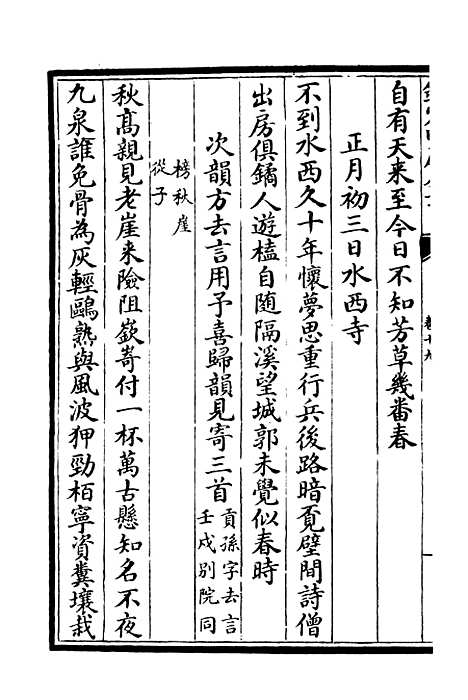 自有天来至今日不知芳草幾番春
正月初三日水西寺
不到水西久十年懷夢思重行兵後路暗覓壁間詩僧
出房俱鐍人遊榼自随隔溪望城郭未覺似春時
次韻方去言用予喜歸韻見寄三首
貢孫字去言
壬戌别院同
榜秋崖
從子
秋髙親見老崖来險阻嶔嵜付一杯萬古懸知名不夜
九泉誰免骨為灰輕鷗熟與風波狎勁栢寧資糞壤栽